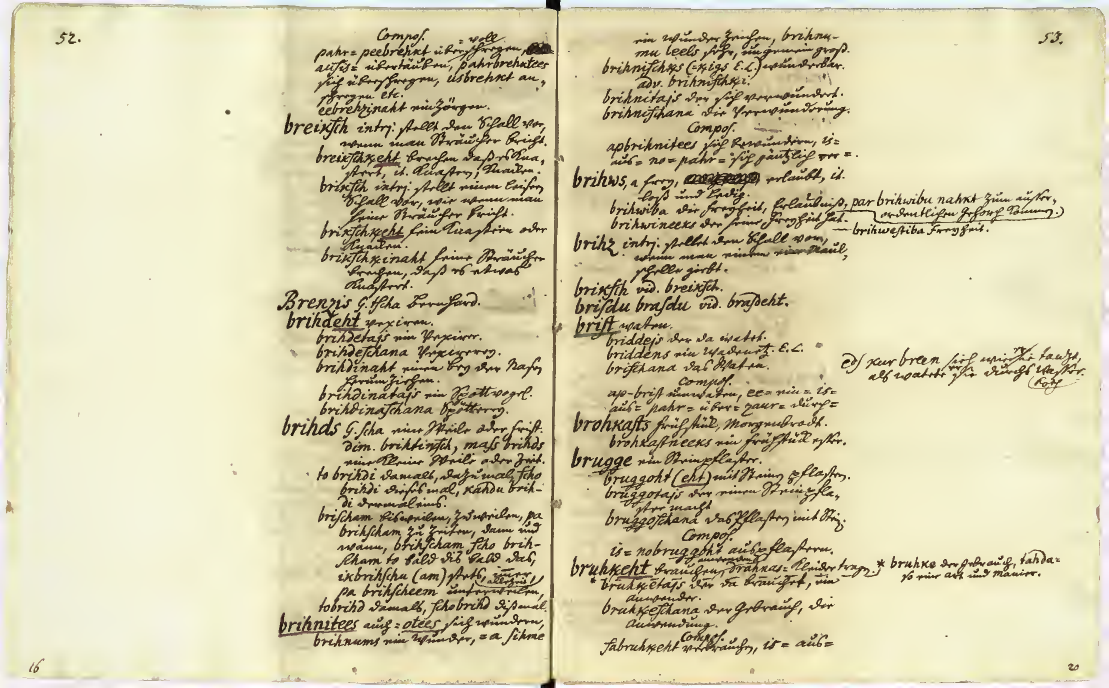 52.
Compos.
pahr= peebrehkt überschreyen, =voll
aiss= übertäuben, pahrbrehktees
sich überschreyen, usbrehkt an,
schreyen etc.
eebrehzinaht ein Zörgen.
breiksch intrj: stellt den Schall vor,
wenn man Sträucher bricht.
breikschkeht brechen daß es Kna,
stert, it. Knastern, Knallen.
briksch intrj: stellt einen leisen
Schall vor, wie wenn man
feine Sträucher bricht.
brikschkeht fein Knastern oder
Knallen.
brikschkinaht feine Sträucher
brechen, daß es etwas
Knastert.
Brenzis G. tscha Bernhard.
brihdeht vexiren.
brihdetajs ein Vexirer.
brihdeschana Vexirerey.
brihdinaht einen bey der Nasen
herumziehen.
brihdinatajs ein Spottvogel.
brihdinaschana Spötterey.
brihds G. scha eine Weile oder frist.
dim. brihtinsch, mass brihds
eine Kleine Weile oder Zeit.
to brihdi damals, dazumal, scho
brihdi dieses mal, kahdu brih-
di dermaleins.
brischam bisweilen, zuweilen, pa
brihscham zu Zeiten, dann und
wann, brihscham scho brih-
scham to bald dis bald das,
ikbrihschu (am) stets, immer
pa brihscheem unterweilen,
tobrihd damals, schobrihd dißmal
brihnitees auch =otees sich wundern,
brihnums ein Wunder, =a sihme
16
53.
ein Wunder Zeichen, brihnu-
mu leels sehr, ungemein groß.
brihnischks (=kigs E.L.) wunderbar.
adv. brihnischki.
brihnitajs der sich verwundert.
brihnischana die Verwunderung.
Compos.
apbrihnitees sich bewundern, is=
aus= no= pahr= sich gäntzlich ver=.
brihws, a frey, erlaubt, it.
loß und ledig.
brihwiba die Freyheit, Erlaubniß, par brihwibu nahkt zum außer,
ordentlichen Gehorch kommen.)
brihwineeks der seine Freyheit hat.
— brihwestiba Freyheit.
brihz intrj: stellet den Schall vor,
wenn man einem eine Maul,
schelle giebt.
briksch vid. breiksch.
brisdu brasdu vid. brasdeht.
brist waten.
briddejs der da watet.
briddens ein Wadenetz. E.L.
brischana das Waten.
ed) kur breen sieh wie sie tantzt,
als watete sie durchs Wasser.
Compos.
ap-brist umwaten, ee= ein= is=
aus= pahr= über= zaur= durch=
brohkasts frühstück, Morgenbrodt.
brohkastneeks ein frühstück esser.
brugge ein Steinpflaster.
bruggoht (eht) mit Steinen pflastern.
bruggotajs der einen Steinpfla,
ster macht
bruggoschana das Pflastern mit Stei.
Compos.
is= nobruggoht auspflastern.
bruhkeht brauchen, anwenden drahnas= Kleider tragen * bruhke der Gebrauch, tahda=
so eine art und manier.
bruhketajs der da brauchet, ein
Anwender.
bruhkeschana der Gebrauch, die
Anwendung.
Compos.
sabruhkeht verbrauchen, is= aus=
20